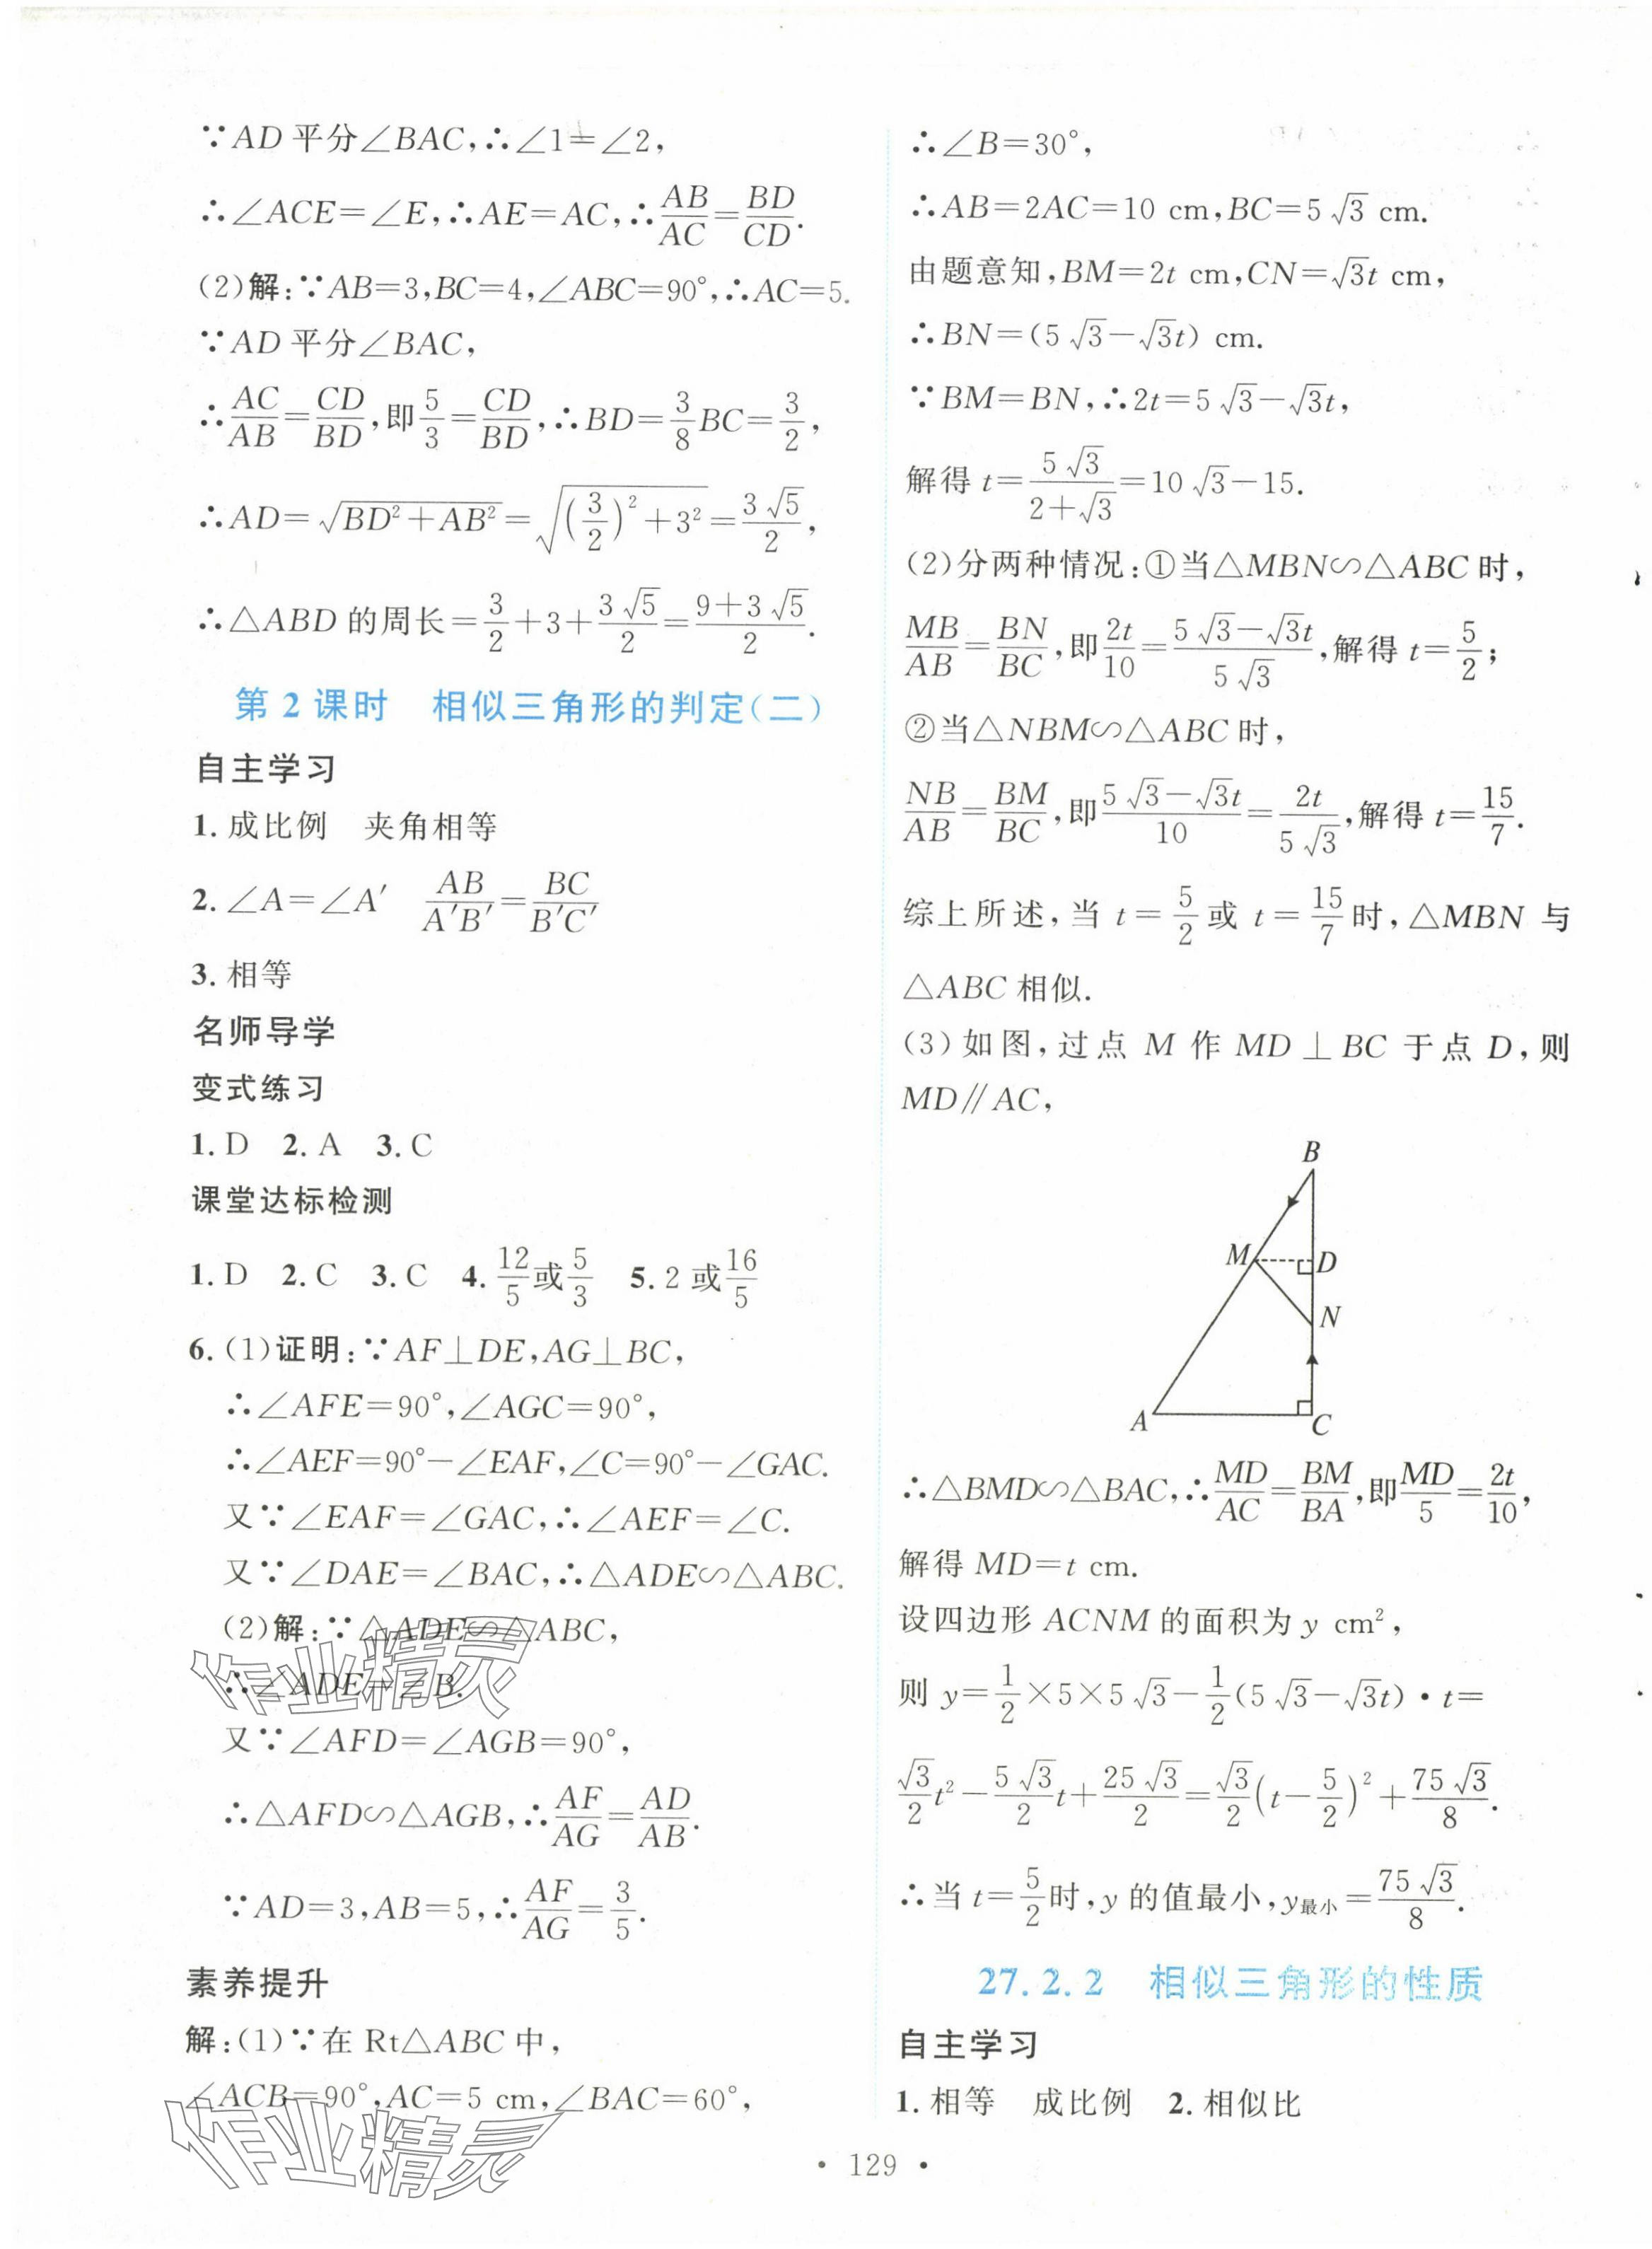 ∵AD 平分∠BAC,∴∠1=∠2,
∴∠ACE=∠E,∴AE=AC,∴AB/AC=BD/CD.
(2)解:∵AB=3,BC=4,∠ABC=90°,∴AC=5.
∵AD 平分∠BAC,
∴AC/AB=CD/BD,即5/3=CD/BD,∴BD=3/8BC=3/2,
∴AD=√(BD²+AB²)=√((3/2)²+3²)=3√5/2,
∴△ABD 的周长=3/2+3+3√5/2=(9+3√5)/2.
第 2 课时 相似三角形的判定(二)
自主学习
1. 成比例 夹角相等
2. ∠A=∠A′ AB/A′B′=BC/B′C′
3. 相等
名师导学
变式练习
1. D 2. A 3. C
课堂达标检测
1. D 2. C 3. C 4. 12/5或5/3 5. 2 或16/5
6. (1)证明:∵AF⊥DE,AG⊥BC,
∴∠AFE=90°,∠AGC=90°,
∴∠AEF=90°-∠EAF,∠C=90°-∠GAC.
又∵∠EAF=∠GAC,∴∠AEF=∠C.
又∵∠DAE=∠BAC,∴△ADE∽△ABC.
(2)解:∵△ADE∽△ABC,
∴∠ADE=∠B.
又∵∠AFD=∠AGB=90°,
∴△AFD∽△AGB,∴AF/AG=AD/AB.
∵AD=3,AB=5,∴AF/AG=3/5.
素养提升
解:(1)∵在 Rt△ABC 中,
∠ACB=90°,AC=5 cm,∠BAC=60°,
∴∠B=30°,
∴AB=2AC=10 cm,BC=5√3 cm.
由题意知,BM=2t cm,CN=√3t cm,
∴BN=(5√3-√3t) cm.
∵BM=BN,∴2t=5√3-√3t,
解得 t=5√3/(2+√3)=10√3-15.
(2)分两种情况:①当△MBN∽△ABC 时,
MB/AB=BN/BC,即2t/10=(5√3-√3t)/5√3,解得 t=5/2;
②当△NBM∽△ABC 时,
NB/AB=BM/BC,即(5√3-√3t)/10=2t/5√3,解得 t=15/7.
综上所述,当 t=5/2或 t=15/7时,△MBN 与
△ABC 相似.
(3)如图,过点 M 作 MD⊥BC 于点 D,则
MD∥AC,
B
M
D
N
A
C
∴△BMD∽△BAC,∴MD/AC=BM/BA,即MD/5=2t/10,
解得 MD=t cm.
设四边形 ACNM 的面积为 y cm²,
则 y=1/2×5×5√3-1/2(5√3-√3t)·t=
√3/2t²-5√3/2t+25√3/2=√3/2(t-5/2)²+75√3/8.
∴当 t=5/2时,y 的值最小,y最小=75√3/8.
27.2.2 相似三角形的性质
自主学习
1. 相等 成比例 2. 相似比
· 129 ·
作业精灵
作业精灵